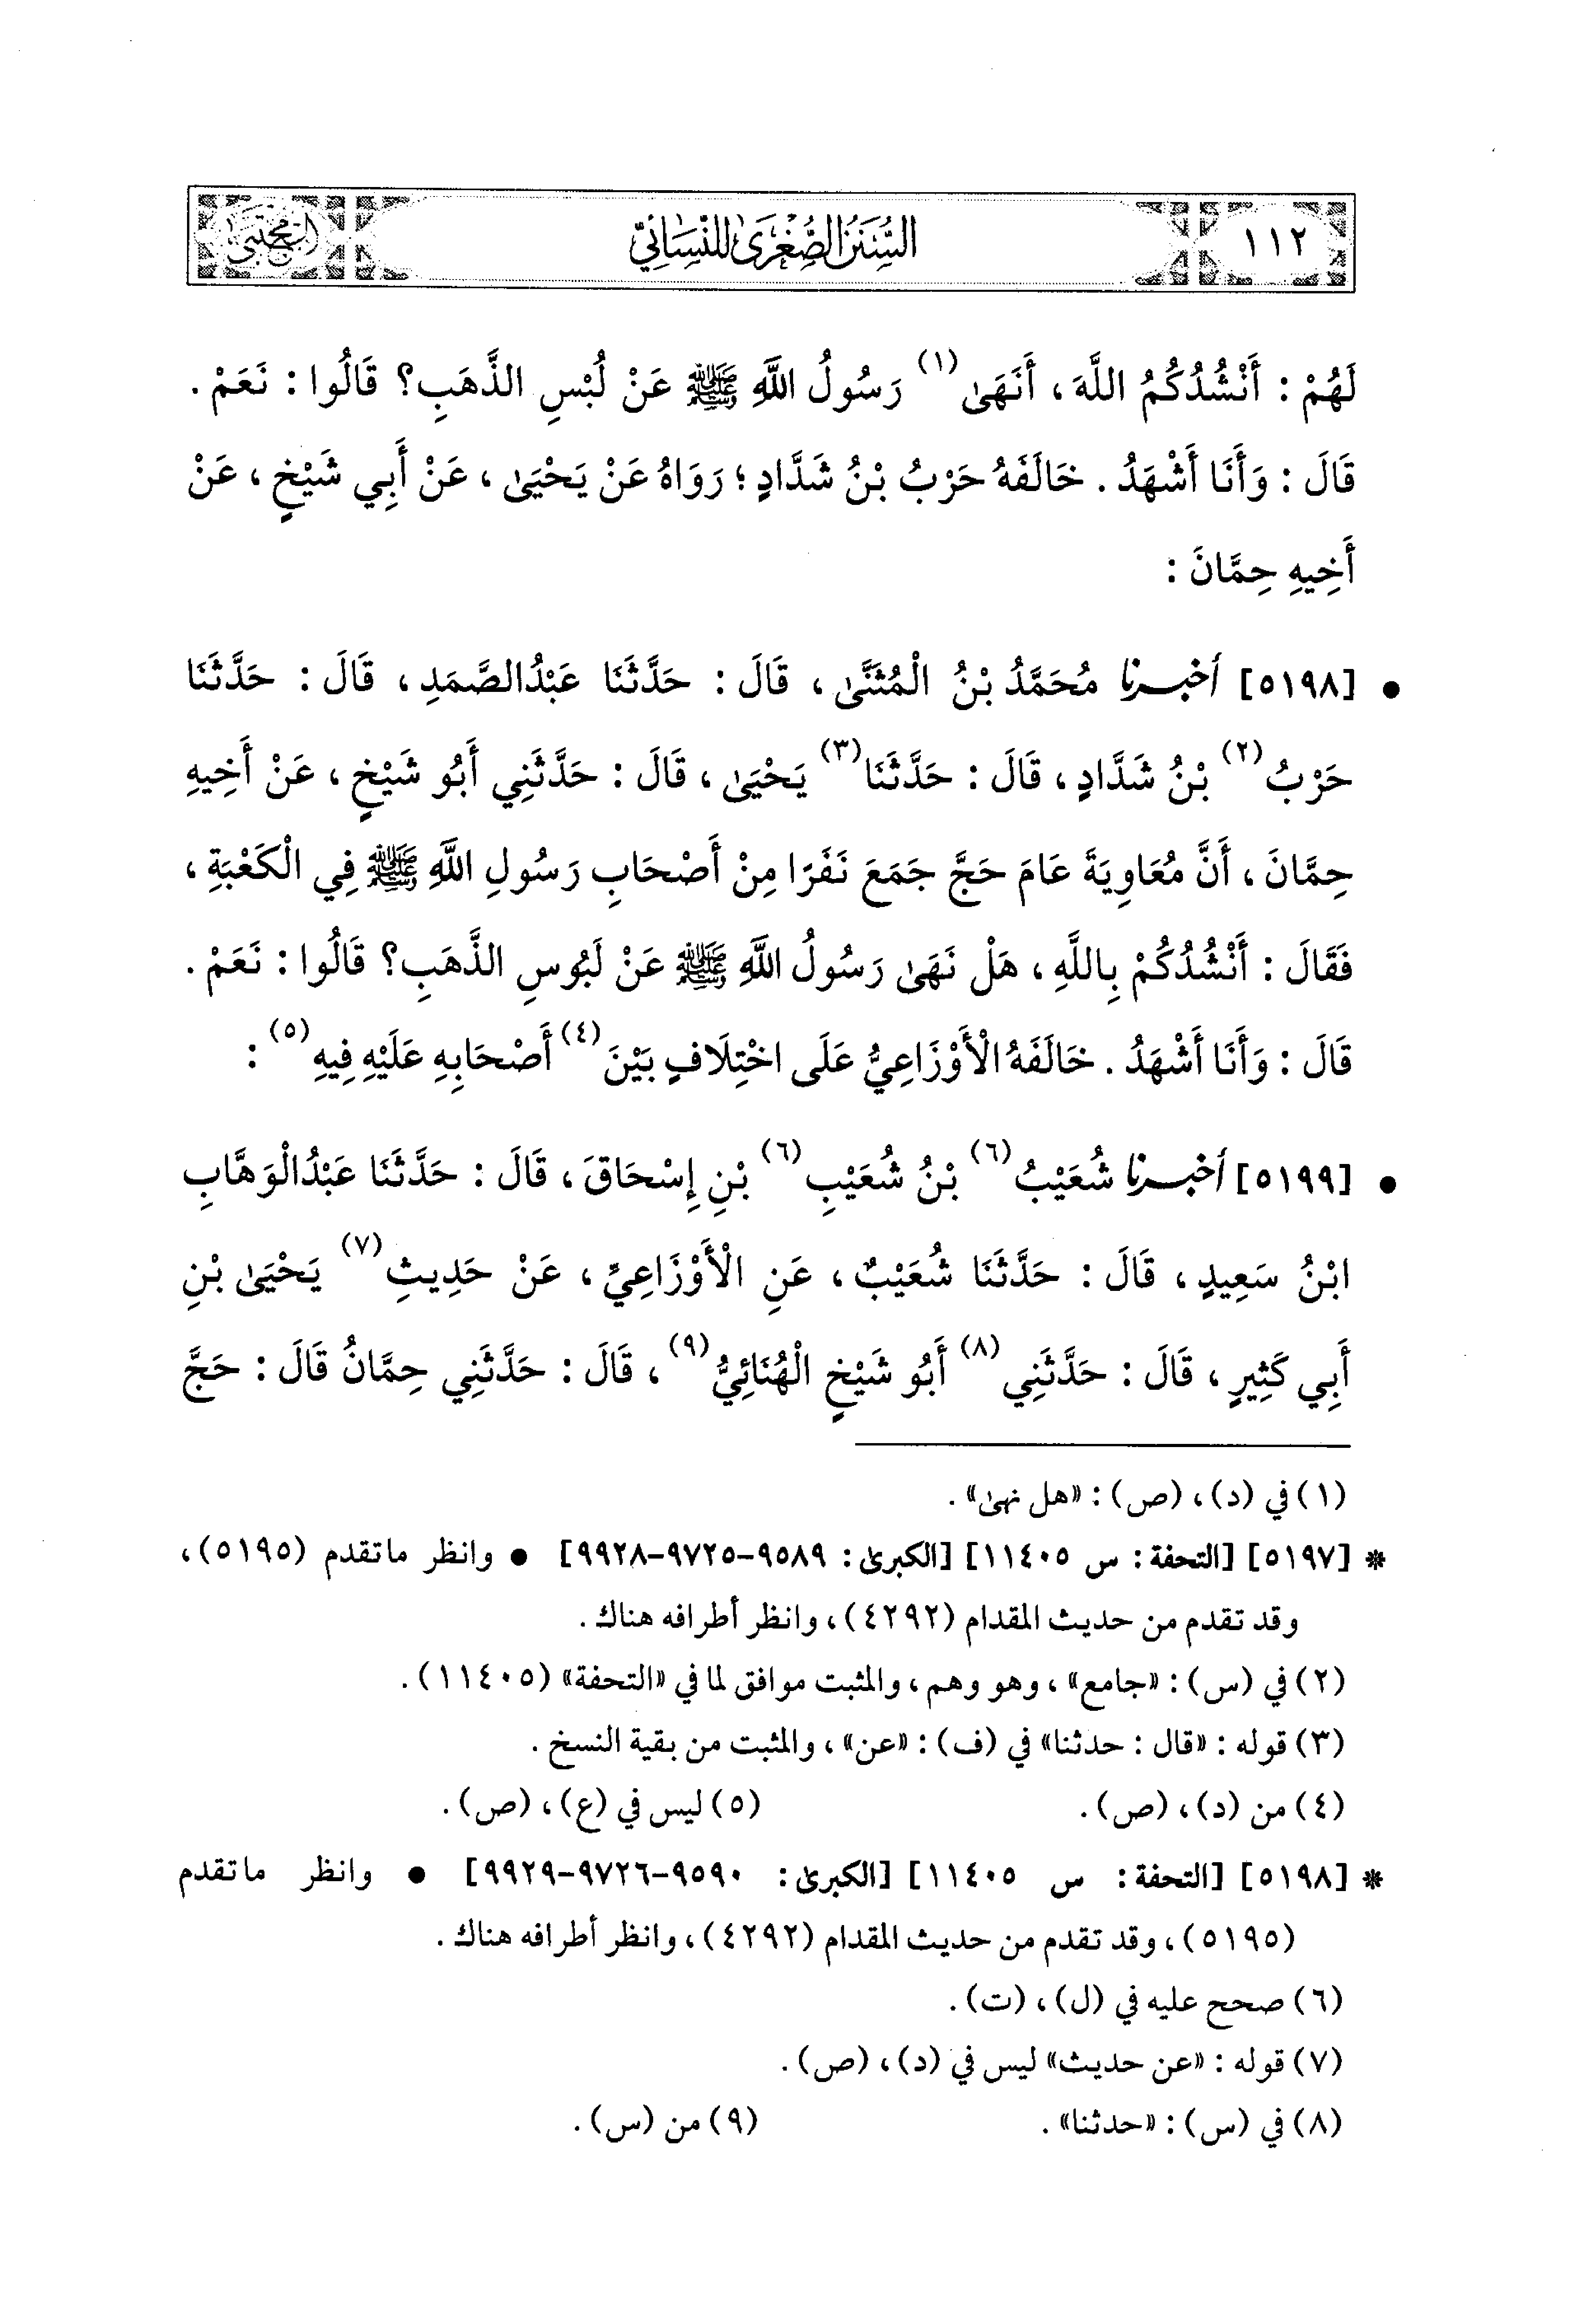 ١١٢ السُّنَنُ الصُّغْرَىٰ لِلنَّسَائِيِّ المجتبى
لَهُمْ : أَنْشُدُكُمُ اللَّهَ ، أَنَهَىٰ(١) رَسُولُ اللَّهِ ﷺ عَنْ لُبْسِ الذَّهَبِ؟ قَالُوا : نَعَمْ .
قَالَ : وَأَنَا أَشْهَدُ . خَالَفَهُ حَرْبُ بْنُ شَدَّادٍ ؛ رَوَاهُ عَنْ يَحْيَىٰ ، عَنْ أَبِي شَيْخٍ ، عَنْ
أَخِيهِ حِمَّانَ :
• [٥١٩٨] أخبرنا مُحَمَّدُ بْنُ الْمُثَنَّىٰ ، قَالَ : حَدَّثَنَا عَبْدُالصَّمَدِ ، قَالَ : حَدَّثَنَا
حَرْبُ(٢) بْنُ شَدَّادٍ ، قَالَ : حَدَّثَنَا(٣) يَحْيَىٰ ، قَالَ : حَدَّثَنِي أَبُو شَيْخٍ ، عَنْ أَخِيهِ
حِمَّانَ ، أَنَّ مُعَاوِيَةَ عَامَ حَجَّ جَمَعَ نَفَرًا مِنْ أَصْحَابِ رَسُولِ اللَّهِ ﷺ فِي الْكَعْبَةِ ،
فَقَالَ : أَنْشُدُكُمْ بِاللَّهِ ، هَلْ نَهَىٰ رَسُولُ اللَّهِ ﷺ عَنْ لَبُوسِ الذَّهَبِ؟ قَالُوا : نَعَمْ .
قَالَ : وَأَنَا أَشْهَدُ . خَالَفَهُ الْأَوْزَاعِيُّ عَلَى اخْتِلَافٍ بَيْنَ(٤) أَصْحَابِهِ عَلَيْهِ فِيهِ(٥) :
• [٥١٩٩] أخبرنا شُعَيْبُ(٦) بْنُ شُعَيْبِ(٦) بْنِ إِسْحَاقَ ، قَالَ : حَدَّثَنَا عَبْدُالْوَهَّابِ
ابْنُ سَعِيدٍ ، قَالَ : حَدَّثَنَا شُعَيْبٌ ، عَنِ الْأَوْزَاعِيِّ ، عَنْ حَدِيثِ(٧) يَحْيَىٰ بْنِ
أَبِي كَثِيرٍ ، قَالَ : حَدَّثَنِي(٨) أَبُو شَيْخٍ الْهُنَائِيُّ(٩) ، قَالَ : حَدَّثَنِي حِمَّانُ قَالَ : حَجَّ
(١) في (د) ، (ص) : «هل نهى» .
* [٥١٩٧] [التحفة: س ١١٤٠٥] [الكبرى: ٩٥٨٩-٩٧٢٥-٩٩٢٨] • وانظر ماتقدم (٥١٩٥) ،
وقد تقدم من حديث المقدام (٤٢٩٢) ، وانظر أطرافه هناك .
(٢) في (س) : «جامع» ، وهو وهم ، والمثبت موافق لما في «التحفة» (١١٤٠٥) .
(٣) قوله : «قال : حدثنا» في (ف) : «عن» ، والمثبت من بقية النسخ .
(٤) من (د) ، (ص) . (٥) ليس في (ع) ، (ص) .
* [٥١٩٨] [التحفة: س ١١٤٠٥] [الكبرى: ٩٥٩٠-٩٧٢٦-٩٩٢٩] • وانظر ماتقدم
(٥١٩٥) ، وقد تقدم من حديث المقدام (٤٢٩٢) ، وانظر أطرافه هناك .
(٦) صحح عليه في (ل) ، (ت) .
(٧) قوله : «عن حديث» ليس في (د) ، (ص) .
(٨) في (س) : «حدثنا» . (٩) من (س) .